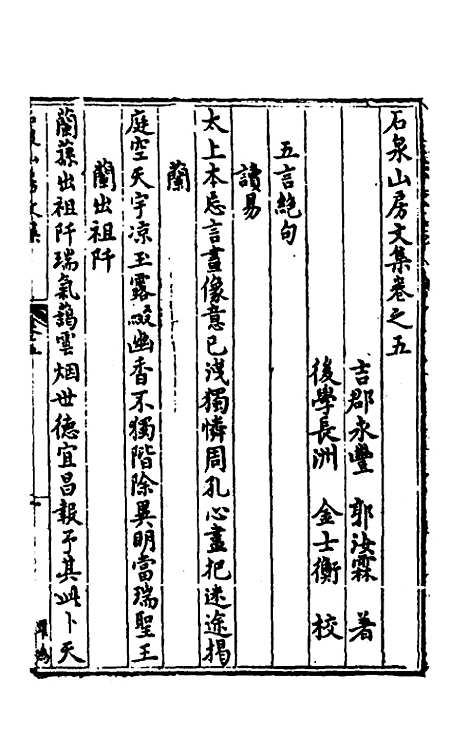 石泉山房文集卷之五
吉郡永豐 郭汝霖 著
後學長洲 金士衡 校
五言絶句
讀易
太上本忘言畫像意已洩獨憐周孔心盡把迷途揭
蘭
庭空天宇凉玉露毀幽香不獨階除異明當瑞聖王
蘭出祖阡
蘭蓀出祖阡瑞氣藹雲烟世德宜昌報予其此卜天